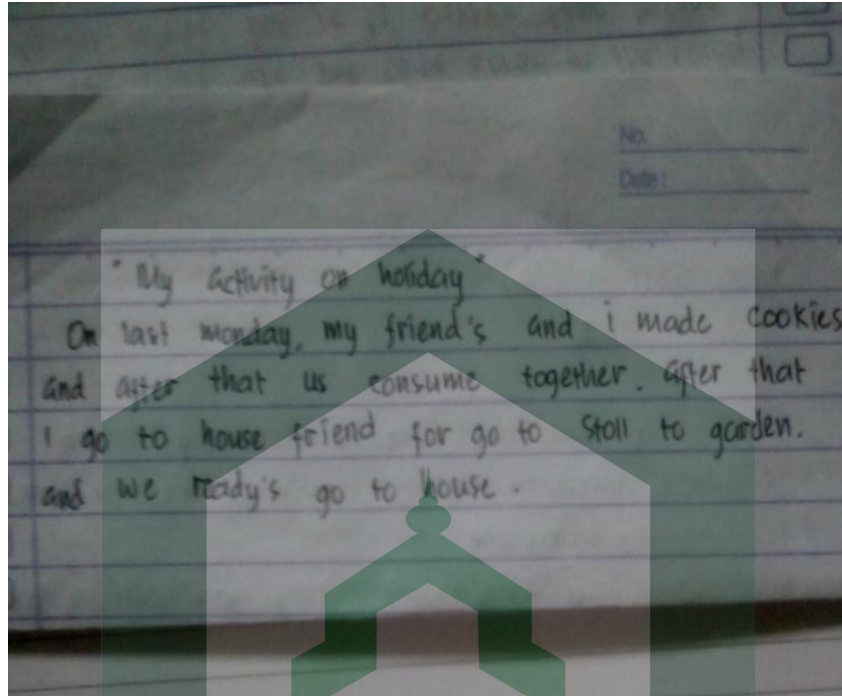 No.
Date:
" My activity on holiday "
On last monday, my friend's and i made cookies
and after that us consume together. after that
I go to house friend for go to stoll to garden.
and we ready's go to house.